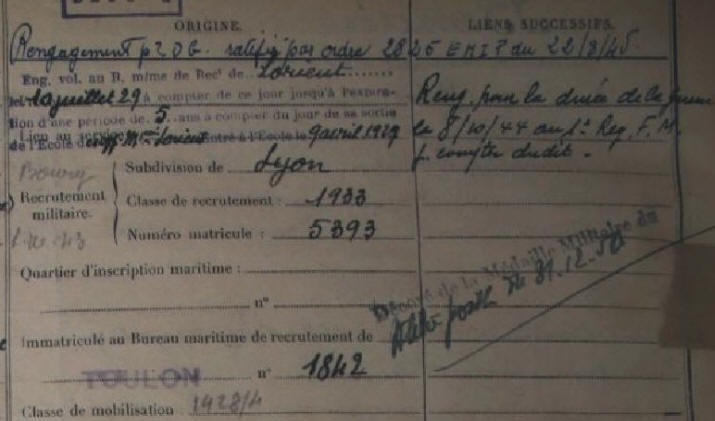 ORIGINE.
LIENS SUCCESSIFS.
Rengagement pr D G. ratifié par ordre 2826 EMIP du 22/8/45
Eng. vol. au B. m/me de Rect de Lorient
le 10 juillet 29 à compter de ce jour jusqu'à l'expira-
tion d'une période de 5 ans à compter du jour de sa sortie
Lien au service
de l'École des Lorient Entré à l'École le 9 avril 1929
Reng. pour la durée de la guerre
le 8/10/44 au 1er Reg. F. M.
p. compter dudit.
Bourg
Recrutement
militaire.
Subdivision de Lyon
Classe de recrutement : 1933
Numéro matricule : 5393
Quartier d'inscription maritime :
n°
Décoré de la Médaille Militaire du
31.12.
Immatriculé au Bureau maritime de recrutement de
TOULON n° 1842
Classe de mobilisation 1928/4